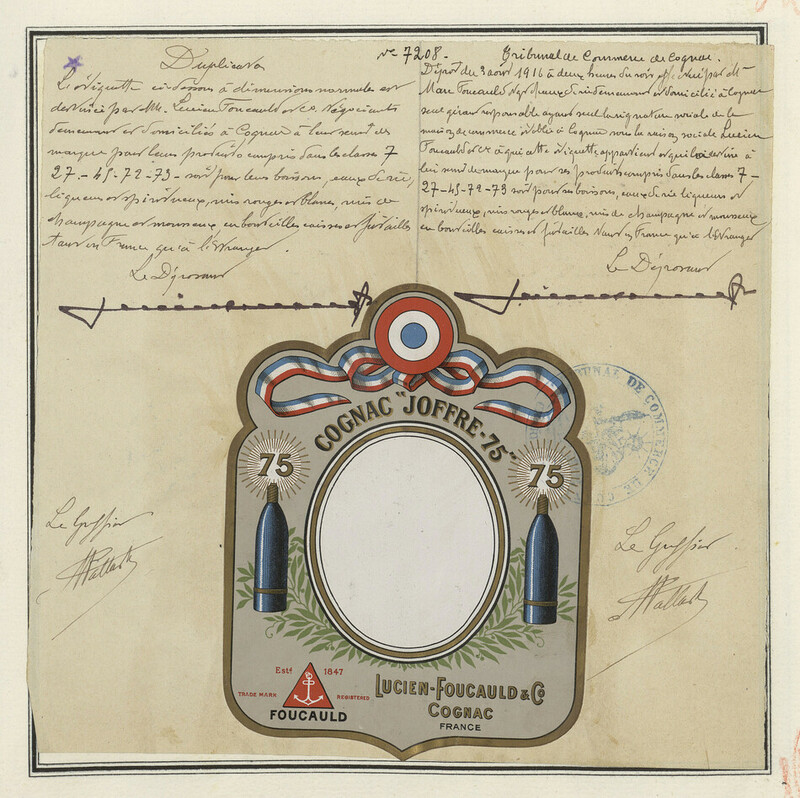 Duplicata
La vignette ci-dessus à dimensions normales est
destinée par MM. Lucien Foucauld et Co. Négociants
demeurant et domiciliés à Cognac à leur servir de
marque pour leurs produits compris dans les classes 7
27-45-72-73- soit pour leurs boissons, eaux de vie,
liqueurs et spiritueux, vins rouges et blancs, vins de
champagne et mousseux, en bouteilles caisses et futailles
tant en France qu'à l'Etranger.
Le Déposant
No 7208.-
Tribunal de Commerce de Cognac.
Dépôt du 3 août 1916 à deux heures du soir effectué par M.
Marc Foucauld Négociant demeurant et domicilié à Cognac
seul gérant responsable ayant seul la signature sociale de la
maison de commerce établie à Cognac sous la raison sociale Lucien
Foucauld et Co à qui cette vignette appartient et qui la destine à
lui servir de marque pour ses produits compris dans les classes 7-
27-45-72-73 soit pour ses boissons, eaux de vie liqueurs et
spiritueux, vins rouges et blancs, vins de champagne et mousseux
en bouteilles caisses et futailles tant en France qu'à l'Etranger
Le Déposant
COGNAC "JOFFRE-75"
75
75
TRIBUNAL DE COMMERCE DE
Le Greffier
Le Greffier
Estd 1847
TRADE MARK REGISTERED
FOUCAULD
LUCIEN-FOUCAULD & Co
COGNAC
FRANCE